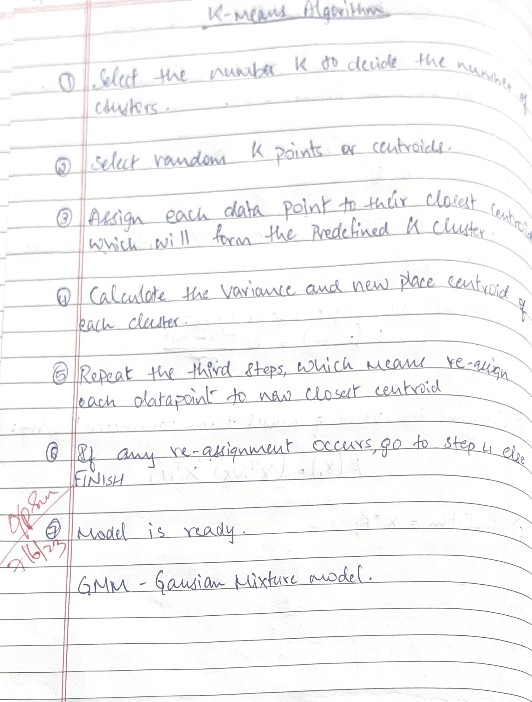 K-Means Algorithm
① Select the number K to decide the number of
clustors.
② Select random K points or centroids.
③ Assign each data point to their closest centroid
which will form the Predefined K cluster.
④ Calculate the variance and new place centroid of
each cluster.
⑤ Repeat the third steps, which means re-assign
each datapoint to new closest centroid
⑥ If any re-assignment occurs, go to step 4 else
FINISH
⑦ Model is ready.
GMM - Gausian Mixture model.